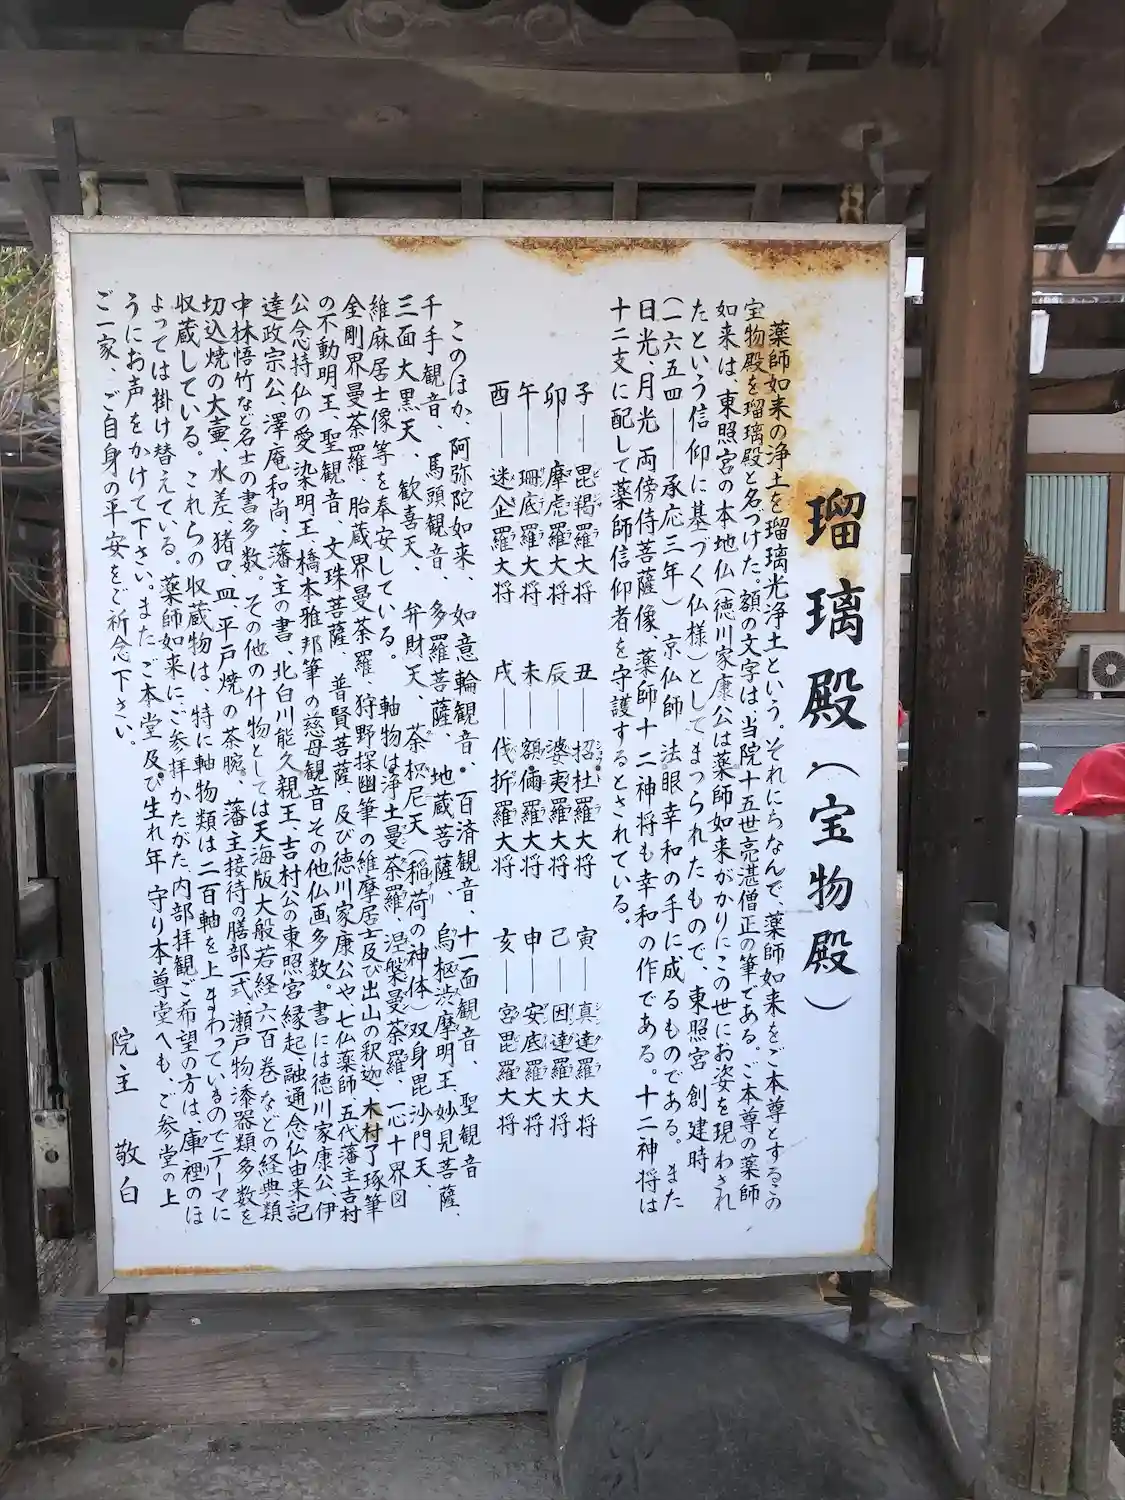 瑠璃殿(宝物殿)
薬師如来の浄土を瑠璃光浄土という。それにちなんで、薬師如来をご本尊とするこの
宝物殿を瑠璃殿と名づけた。額の文字は、当院十五世亮湛僧正の筆である。ご本尊の薬師
如来は、東照宮の本地仏(徳川家康公は薬師如来がかりにこの世にお姿を現わされ
たという信仰に基づく仏様)としてまつられたもので、東照宮 創建時
(一六五四―承応三年) 京仏師 法眼幸和の手に成るものである。また
日光、月光 両傍侍菩薩像、薬師十二神将も幸和の作である。十二神将は
十二支に配して薬師信仰者を守護するとされている。
子―毘羯羅大将 丑―招杜羅大将 寅―真達羅大将
卯―摩虎羅大将 辰―婆夷羅大将 己―因達羅大将
午―珊底羅大将 未―額儞羅大将 申―安底羅大将
酉―迷企羅大将 戌―伐折羅大将 亥―宮毘羅大将
このほか、阿弥陀如来、如意輪観音、百済観音、十一面観音、聖観音
千手観音、馬頭観音、多羅菩薩、地蔵菩薩、烏枢渋摩明王、妙見菩薩、
三面大黒天、歓喜天、弁財天 荼枳尼天(稲荷の神体)双身毘沙門天、
維麻居士像等を奉安している。 軸物は浄土曼荼羅、涅槃曼荼羅、一心十界図
金剛界曼荼羅、胎蔵界曼荼羅、狩野探幽筆の維摩居士及び出山の釈迦、木村了琢筆
の不動明王、聖観音、文珠菩薩、普賢菩薩 及び徳川家康公や七仏薬師、五代藩主吉村
公念持仏の愛染明王、橋本雅邦筆の慈母観音その他仏画多数。書には徳川家康公、伊
達政宗公、澤庵和尚、藩主の書、北白川能久親王、吉村公の東照宮縁起、融通念仏由来記
中林悟竹など名士の書多数。その他の什物としては天海版大般若経六百巻などの経典類
切込焼の大壷、水差、猪口、皿、平戸焼の茶腕、藩主接待の膳部一式、瀬戸物漆器類多数を
収蔵している。これらの収蔵物は、特に軸物類は二百軸を上まわっているのでテーマに
よっては掛け替えている。薬師如来にご参拝かたがた、内部拝観ご希望の方は、庫裡のほ
うにお声をかけて下さい。またご本堂及び生れ年 守り本尊堂へも、ご参堂の上
ご一家、ご自身の平安をご祈念下さい。
院主 敬白